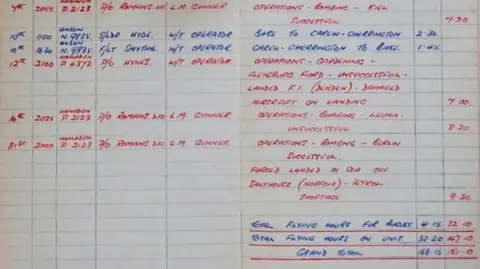 7th 2055 HAMPDEN P.2123 P/O ROMANS. DFC L.M. GUNNER OPERATIONS - BOMBING - KIEL
SUCCESSFUL 7.30
10th 1100 ANSON N.9835. S/LDR HYDE. W/T OPERATOR BASE TO CAREW-CHERRINGTON 2.30.
10th 1630 ANSON N.9835. W/T OPERATOR CAREW-CHERRINGTON TO BASE. 1.45.
12th 2100 HAMPDEN P.4372 P/O HYNES. W/T OPERATOR OPERATIONS - GARDENING -
FLENSBURG FORD - UNSUCCESSFUL -
LANDED F.I. - DAMAGED
AIRCRAFT ON LANDING 7.00
16th 2025 HAMPDEN P.2123 P/O ROMANS. DFC L.M. GUNNER OPERATIONS - BOMBING - LEUNA.
UNSUCCESSFUL 8.20
31st 2000 HAMPDEN P.2123 P/O ROMANS. DFC L.M. GUNNER OPERATIONS - BOMBING - BERLIN
SUCCESSFUL.
FORCED LANDED IN SEA OFF
SALTHOUSE (NORFOLK) - PETROL
SHORTAGE 9.20
TOTAL FLYING HOURS FOR AUGUST 4.15 32.10
TOTAL FLYING HOURS ON UNIT. 32.20 147.10
GRAND TOTAL 168.15 151.10